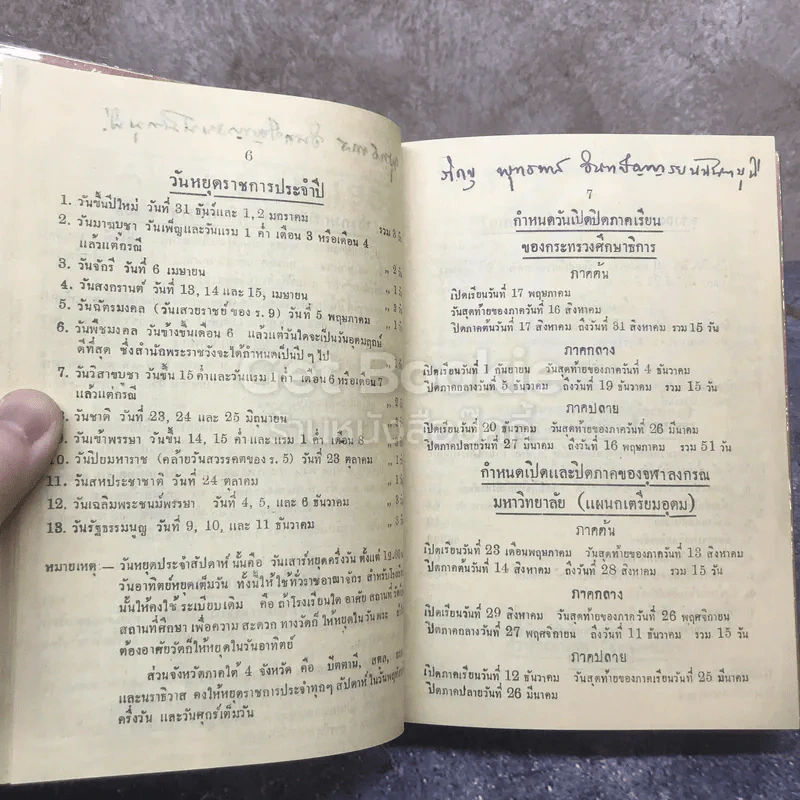 6
วันหยุดราชการประจำปี
1. วันขึ้นปีใหม่ วันที่ 31 ธันว์และ 1, 2 มกราคม รวม 3 วัน
2. วันมาฆบูชา วันเพ็ญและวันแรม 1 ค่ำ เดือน 3 หรือเดือน 4
แล้วแต่กรณี „ 2 วัน
3. วันจักรี วันที่ 6 เมษายน
4. วันสงกรานต์ วันที่ 13, 14 และ 15, เมษายน
5. วันฉัตรมงคล (วันเสวยราชย์ ของ ร. 9) วันที่ 5 พฤษภาคม
6. วันพืชมงคล วันข้างขึ้นเดือน 6 แล้วแต่วันใดจะเป็นวันอุดมฤกษ์
ดีที่สุด ซึ่งสำนักพระราชวังจะได้กำหนดเป็นปี ๆ ไป
7. วันวิสาขบูชา วันขึ้น 15 ค่ำและวันแรม 1 ค่ำ เดือน 6 หรือเดือน 7
แล้วแต่กรณี
8. วันชาติ วันที่ 23, 24 และ 25 มิถุนายน
9. วันเข้าพรรษา วันขึ้น 14, 15 ค่ำ และแรม 1 ค่ำ เดือน 8
10. วันปิยมหาราช (คล้ายวันสวรรคตของ ร. 5) วันที่ 23 ตุลาคม
11. วันสหประชาชาติ วันที่ 24 ตุลาคม
12. วันเฉลิมพระชนม์พรรษา วันที่ 4, 5, และ 6 ธันวาคม
13. วันรัฐธรรมนูญ วันที่ 9, 10, และ 11 ธันวาคม
หมายเหตุ:— วันหยุดประจำสัปดาห์ นั้นคือ วันเสาร์หยุดครึ่งวัน ตั้งแต่ 12.00
วันอาทิตย์หยุดเต็มวัน ทั้งนี้ให้ใช้ทั่วราชอาณาจักร สำหรับโรงเรียน
นั้นให้คงใช้ ระเบียบเดิม คือ ถ้าโรงเรียนใด อาศัย สถานที่วัด
สถานที่ศึกษา เพื่อความ สะดวก ทางวัดก็ ให้หยุดในวันพระ
ต้องอาศัยวัดก็ให้หยุดในวันอาทิตย์
ส่วนจังหวัดภาคใต้ 4 จังหวัด คือ ปัตตานี, สตูล,
และนราธิวาส คงให้หยุดราชการประจำทุกๆ สัปดาห์ ในวันพฤหัส
ครึ่งวัน และวันศุกร์เต็มวัน
ภิกขุ พุทธทาส อินทปัญญา
7
กำหนดวันเปิดปิดภาคเรียน
ของกระทรวงศึกษาธิการ
ภาคต้น
เปิดเรียนวันที่ 17 พฤษภาคม
วันสุดท้ายของภาควันที่ 16 สิงหาคม
ปิดภาคต้นวันที่ 17 สิงหาคม ถึงวันที่ 31 สิงหาคม รวม 15 วัน
ภาคกลาง
เปิดเรียนวันที่ 1 กันยายน วันสุดท้ายของภาควันที่ 4 ธันวาคม
ปิดภาคกลางวันที่ 5 ธันวาคม ถึงวันที่ 19 ธันวาคม รวม 15 วัน
ภาคปลาย
เปิดเรียนวันที่ 20 ธันวาคม วันสุดท้ายของภาควันที่ 26 มีนาคม
ปิดภาคปลายวันที่ 27 มีนาคม ถึงวันที่ 16 พฤษภาคม รวม 51 วัน
กำหนดเปิดและปิดภาคของจุฬาลงกรณ
มหาวิทยาลัย (แผนกเตรียมอุดม)
ภาคต้น
เปิดเรียนวันที่ 23 เดือนพฤษภาคม วันสุดท้ายของภาควันที่ 13 สิงหาคม
ปิดภาคต้นวันที่ 14 สิงหาคม ถึงวันที่ 28 สิงหาคม รวม 15 วัน
ภาคกลาง
เปิดเรียนวันที่ 29 สิงหาคม วันสุดท้ายของภาควันที่ 26 พฤศจิกายน
ปิดภาคกลางวันที่ 27 พฤศจิกายน ถึงวันที่ 11 ธันวาคม รวม 15 วัน
ภาคปลาย
เปิดภาคเรียนวันที่ 12 ธันวาคม วันสุดท้ายของภาคเรียนวันที่ 25 มีนาคม
ปิดภาคปลายวันที่ 26 มีนาคม